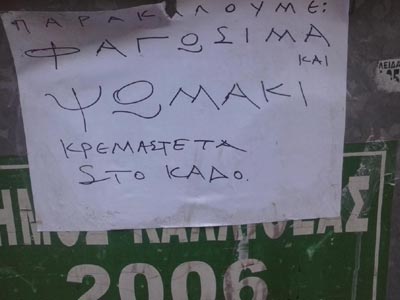 ΠΑΡΑΚΑΛΟΥΜΕ:
ΦΑΓΩΣΙΜΑ
ΚΑΙ
ΨΩΜΑΚΙ
ΚΡΕΜΑΣΤΕΤΑ
ΣΤΟ ΚΑΔΟ.
ΗΜΟΣ
2006